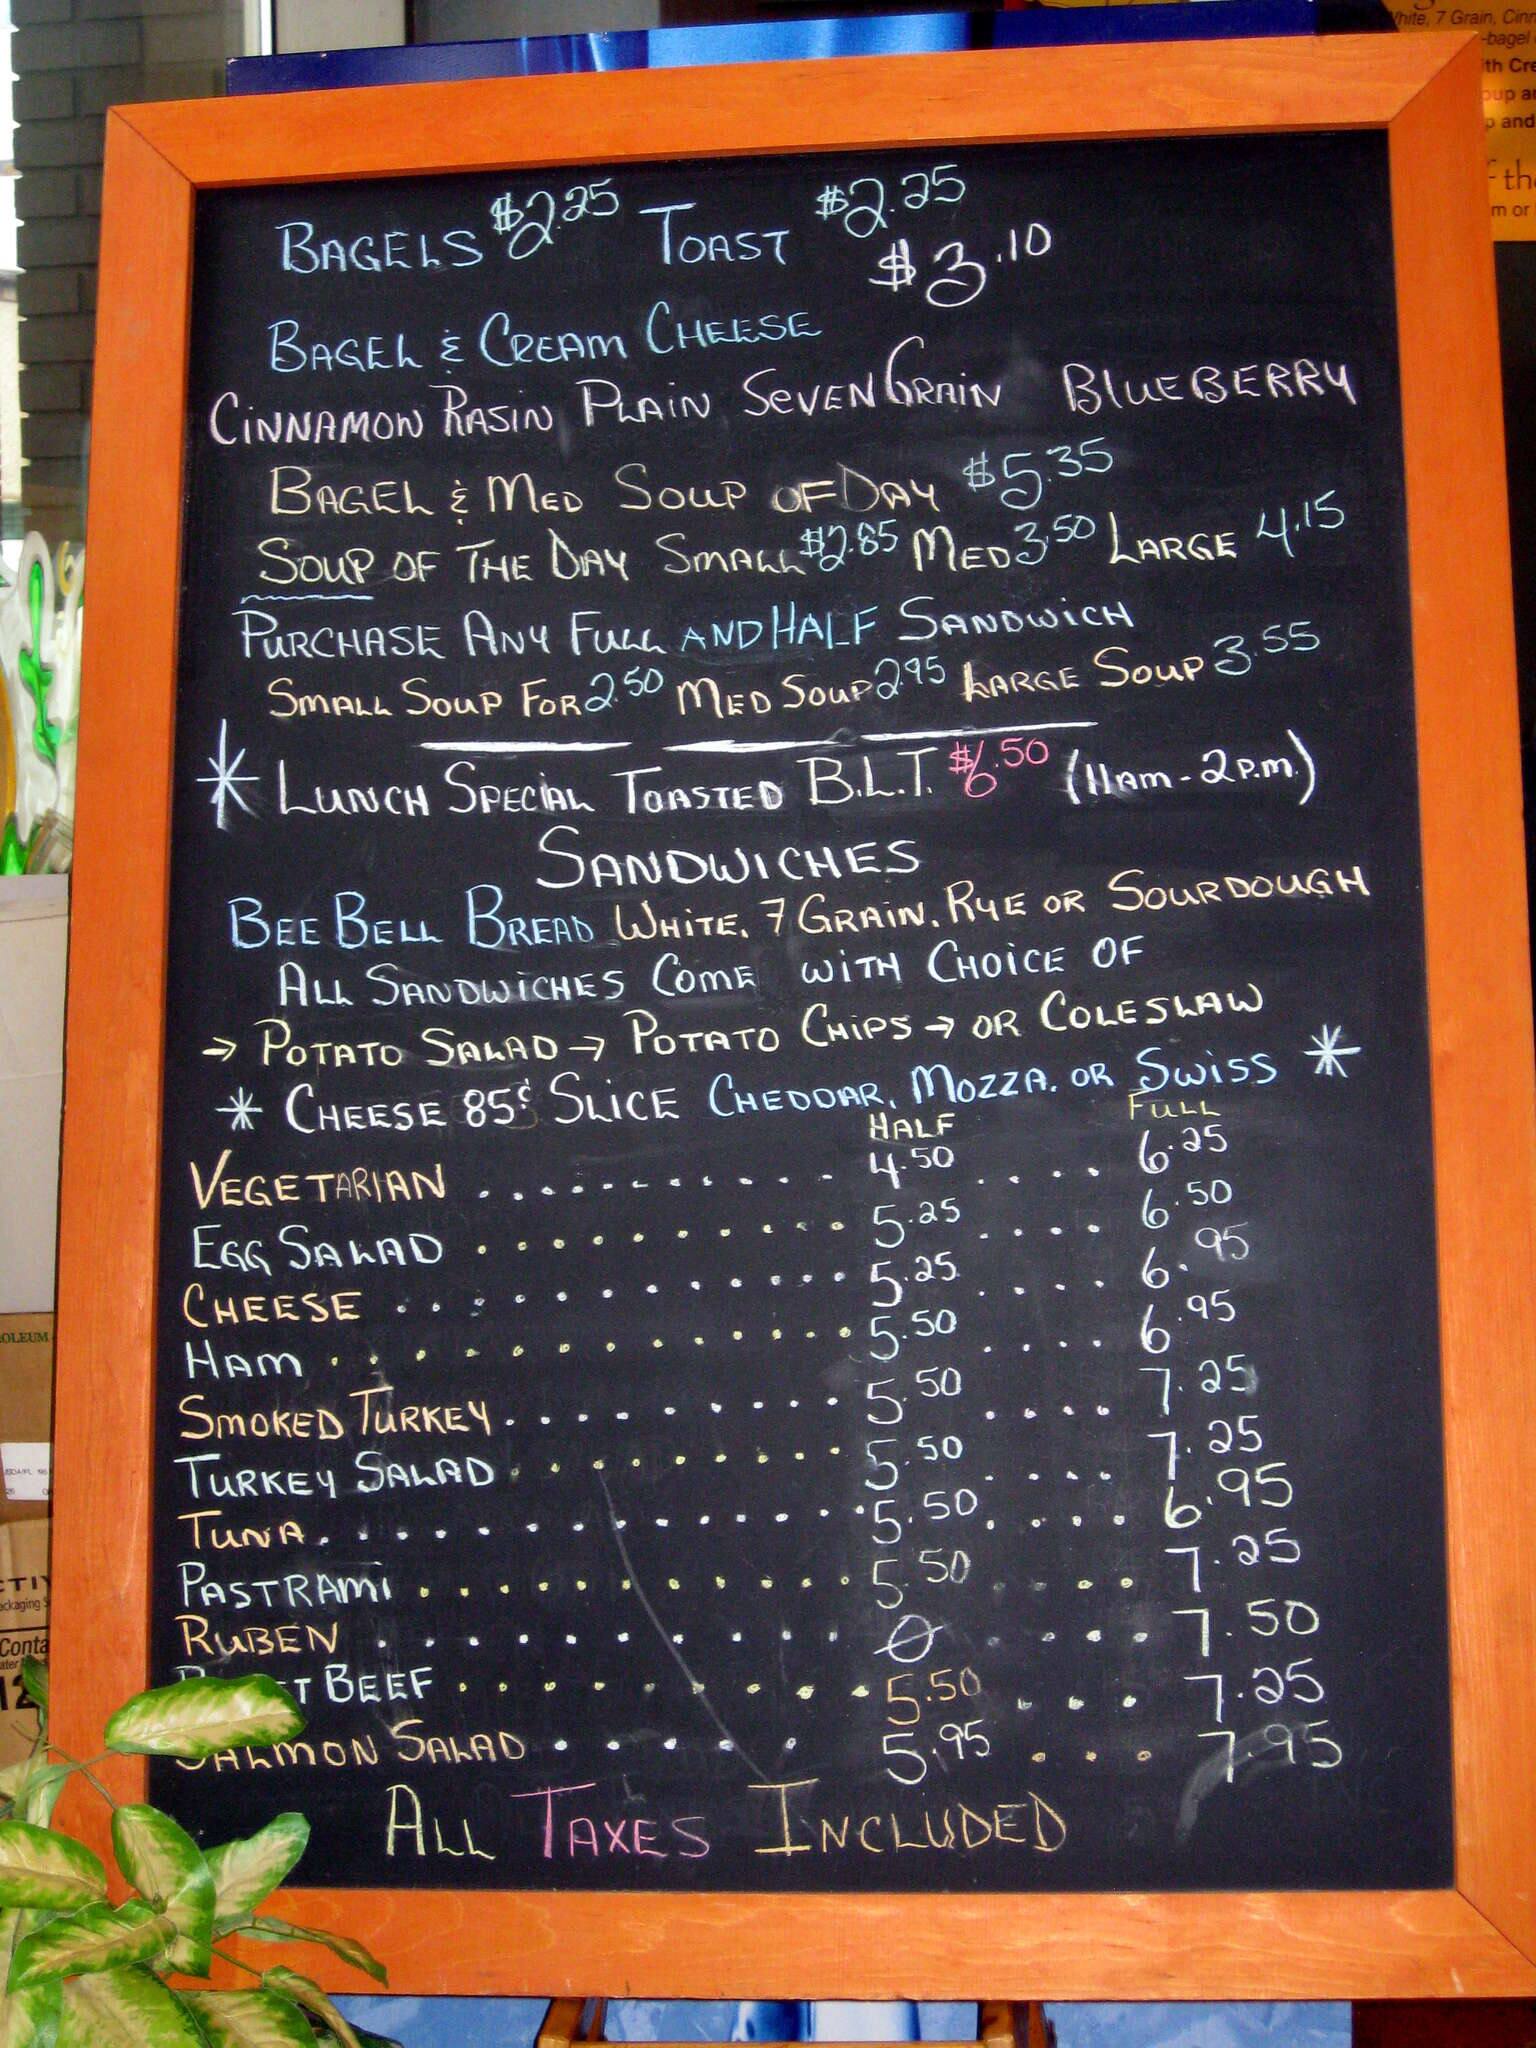 White, 7 Grain, Cinn
-bagel
ith Cre
oup a
p and
f the
m or
BAGELS $2.25 TOAST $2.25
$3.10
BAGEL & CREAM CHEESE
CINNAMON RASIN PLAIN SEVEN GRAIN BLUEBERRY
BAGEL & MED SOUP OF DAY $5.35
SOUP OF THE DAY SMALL $2.85 MED 3.50 LARGE 4.15
PURCHASE ANY FULL AND HALF SANDWICH
SMALL SOUP FOR 2.50 MED SOUP 2.95 LARGE SOUP 3.55
* LUNCH SPECIAL TOASTED B.L.T. $6.50 (11AM - 2P.M.)
SANDWICHES
BEE BELL BREAD WHITE, 7 GRAIN, RYE OR SOURDOUGH
ALL SANDWICHES COME WITH CHOICE OF
→ POTATO SALAD → POTATO CHIPS → OR COLESLAW
* CHEESE 85¢ SLICE CHEDDAR, MOZZA. OR SWISS *
HALF FULL
VEGETARIAN .......... 4.50 .... 6.25
EGG SALAD .......... 5.25 .... 6.50
CHEESE .......... 5.25 .... 6.95
HAM .......... 5.50 .... 6.95
SMOKED TURKEY .......... 5.50 .... 7.25
TURKEY SALAD .......... 5.50 .... 7.25
TUNA .......... 5.50 .... 6.95
PASTRAMI .......... 5.50 .... 7.25
RUBEN .......... 0 .... 7.50
T BEEF .......... 5.50 ... 7.25
SALMON SALAD ...... 5.95 ... 7.95
ALL TAXES INCLUDED
OLEUM
Conta
12